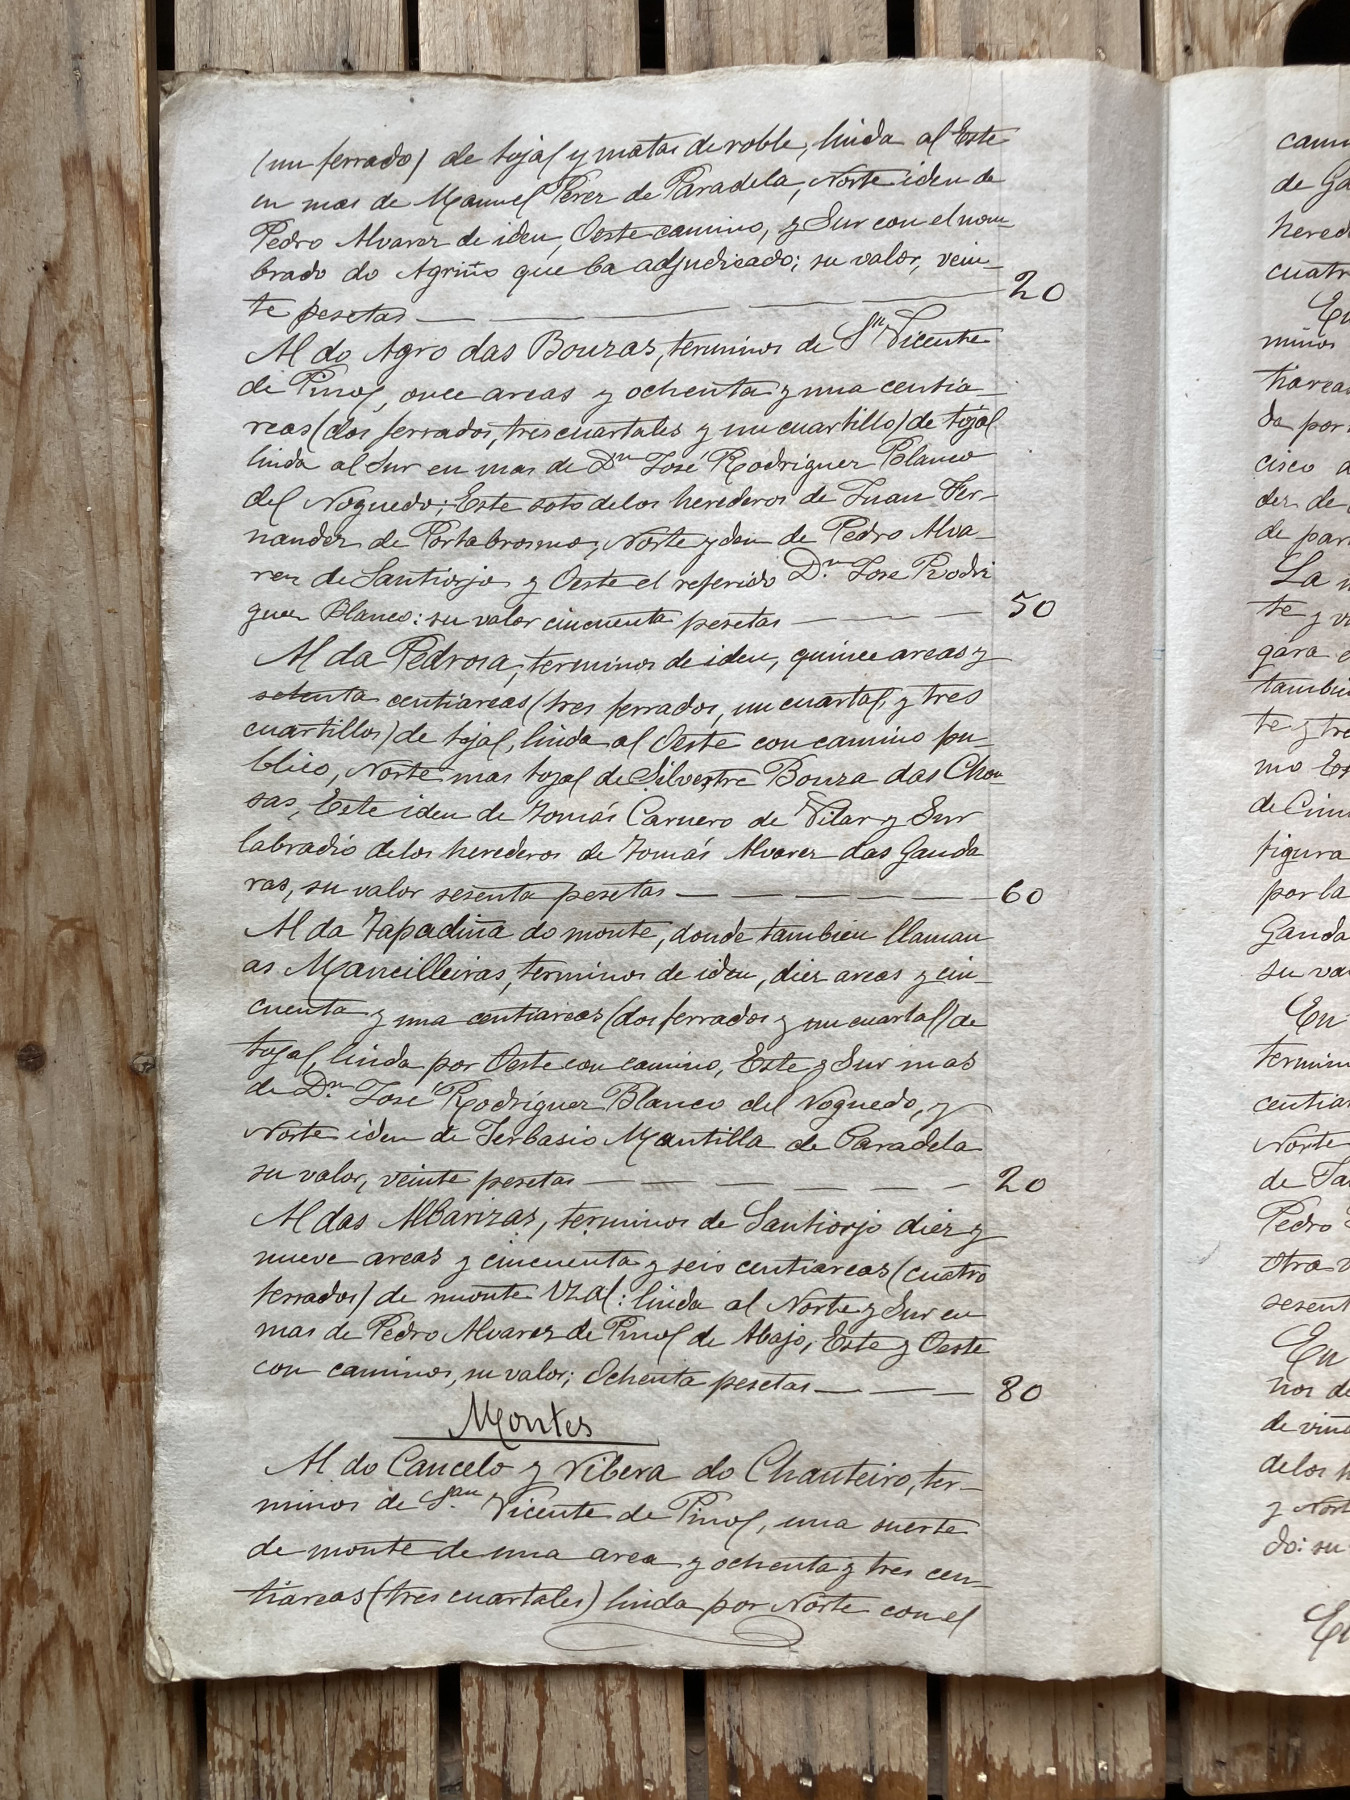 (un ferrado) de tojal y matas de roble, linda al Este
en mas de Manuel Perez de Paradela, Norte iden de
Pedro Alvarez de iden, Oeste camino, y Sur con el nom-
brado do Agriño que ba adjudicado; su valor, vein-
te pesetas — 20
Al do Agro das Bouzas, terminos de Sn Vicente
de Pinol, once areas y ochenta y una centia-
reas (dos ferrados, tres cuartales y un cuartillo) de tojal
linda al Sur en mas de Dn José Rodriguez Blanco
del Noguedo; Este soto delos herederos de Juan Fer-
nandez de Portabrosmo, Norte yden de Pedro Alva-
rez de Santiorjo y Oeste el referido Dn Jose Rodri
guez Blanco: su valor cincuenta pesetas — 50
Al da Pedrosa, terminos de iden, quince areas y
setenta centiareas (tres ferrados, un cuartal, y tres
cuartillos) de tojal, linda al Oeste con camino pu-
blico, Norte mas tojal de Silvestre Bouza das Chou
sas, Este iden de Tomás Carnero de Vilar y Sur
labradio delos herederos de Tomás Alvarez das Ganda
ras, su valor sesenta pesetas — 60
Al da Tapadiña do monte, donde tambien llaman
as Mancilleiras, terminos de iden, diez areas y cin-
cuenta y una centiareas (dos ferrados y un cuartal) de
tojal, linda por Oeste con camino, Este y Sur mas
de Dn José Rodriguez Blanco del Noguedo, y
Norte iden de Jerbasio Mantilla de Paradela
su valor, veinte pesetas — 20
Al das Albarizas, terminos de Santiorjo diez y
nueve areas y cincuenta y seis centiareas (cuatro
ferrados) de monte uzal: linda al Norte y Sur en
mas de Pedro Alvarez de Pinol de Abajo, Este y Oeste
con caminos, su valor; Ochenta pesetas — 80
Montes
Al do Cancelo y Ribera do Chanteiro, ter-
minos de San Vicente de Pinol, una suerte
de monte de una area y ochenta y tres cen-
tiareas (tres cuartales) linda por Norte con el
de Ga
hered
cuatr
En
minos
tiarea
da por
cisco
der de
de par
La
te y v
gara
tambie
te y tre
mo Es
de Cim
figura
por la
Ganda
su va
En
termin
centiar
Norte
de Sa
Pedro
otra
sesent
En
nos de
de viñ
delos h
y Nort
do: su
En